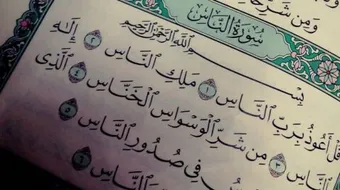 وَمِن شَرِّ
سُورَةُ النَّاسِ
بِسْمِ اللَّهِ الرَّحْمَٰنِ الرَّحِيمِ
قُلْ أَعُوذُ بِرَبِّ النَّاسِ ١ مَلِكِ النَّاسِ ٢ إِلَٰهِ
النَّاسِ ٣ مِن شَرِّ الْوَسْوَاسِ الْخَنَّاسِ ٤ الَّذِي
فِي صُدُورِ النَّاسِ ٥
النَّاسِ ٦